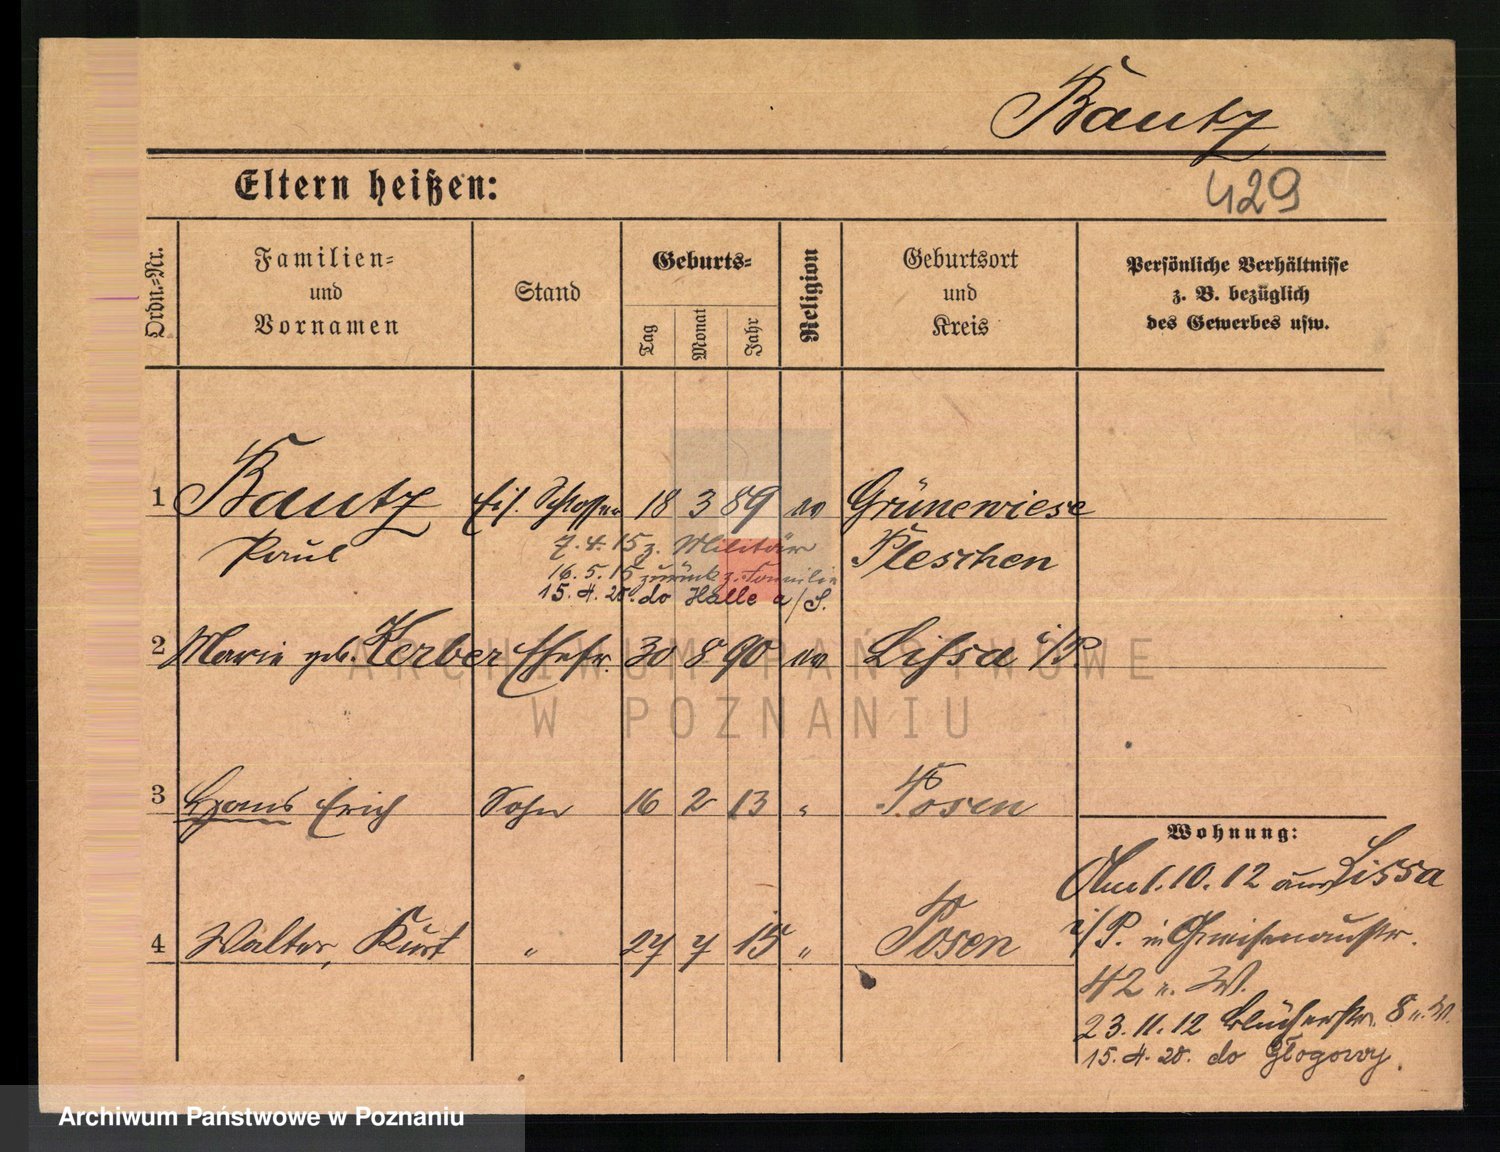 Bautz
Eltern heißen:
429
Ordn.-Nr.
Familien-
und
Vornamen
Stand
Geburts-
Tag
Monat
Jahr
Religion
Geburtsort
und
Kreis
Persönliche Verhältnisse
z. B. bezüglich
des Gewerbes usw.
1 Bautz Eis. Schlosser 18 3 89 ev Grünewiese
Paul Pleschen
7.4.15 z. Militär
16.5.15 zurück z. Familie
15.4.20. do Halle a/S.
2 Marie geb. Kerber Ehefr. 30 8 90 ev Lissa i/P.
3 Hans Erich Sohn 16 2 13 " Posen
4 Walter, Kurt " 27 7 15 " Posen
Wohnung:
Am 1.10.12 aus Lissa
i/P. in Gneisenaustr.
42 n. W.
23.11.12 Blücherstr. 8 n. W.
15.4.20. do Głogowy.
ARCHIWUM PAŃSTWOWE
W POZNANIU
Archiwum Państwowe w Poznaniu